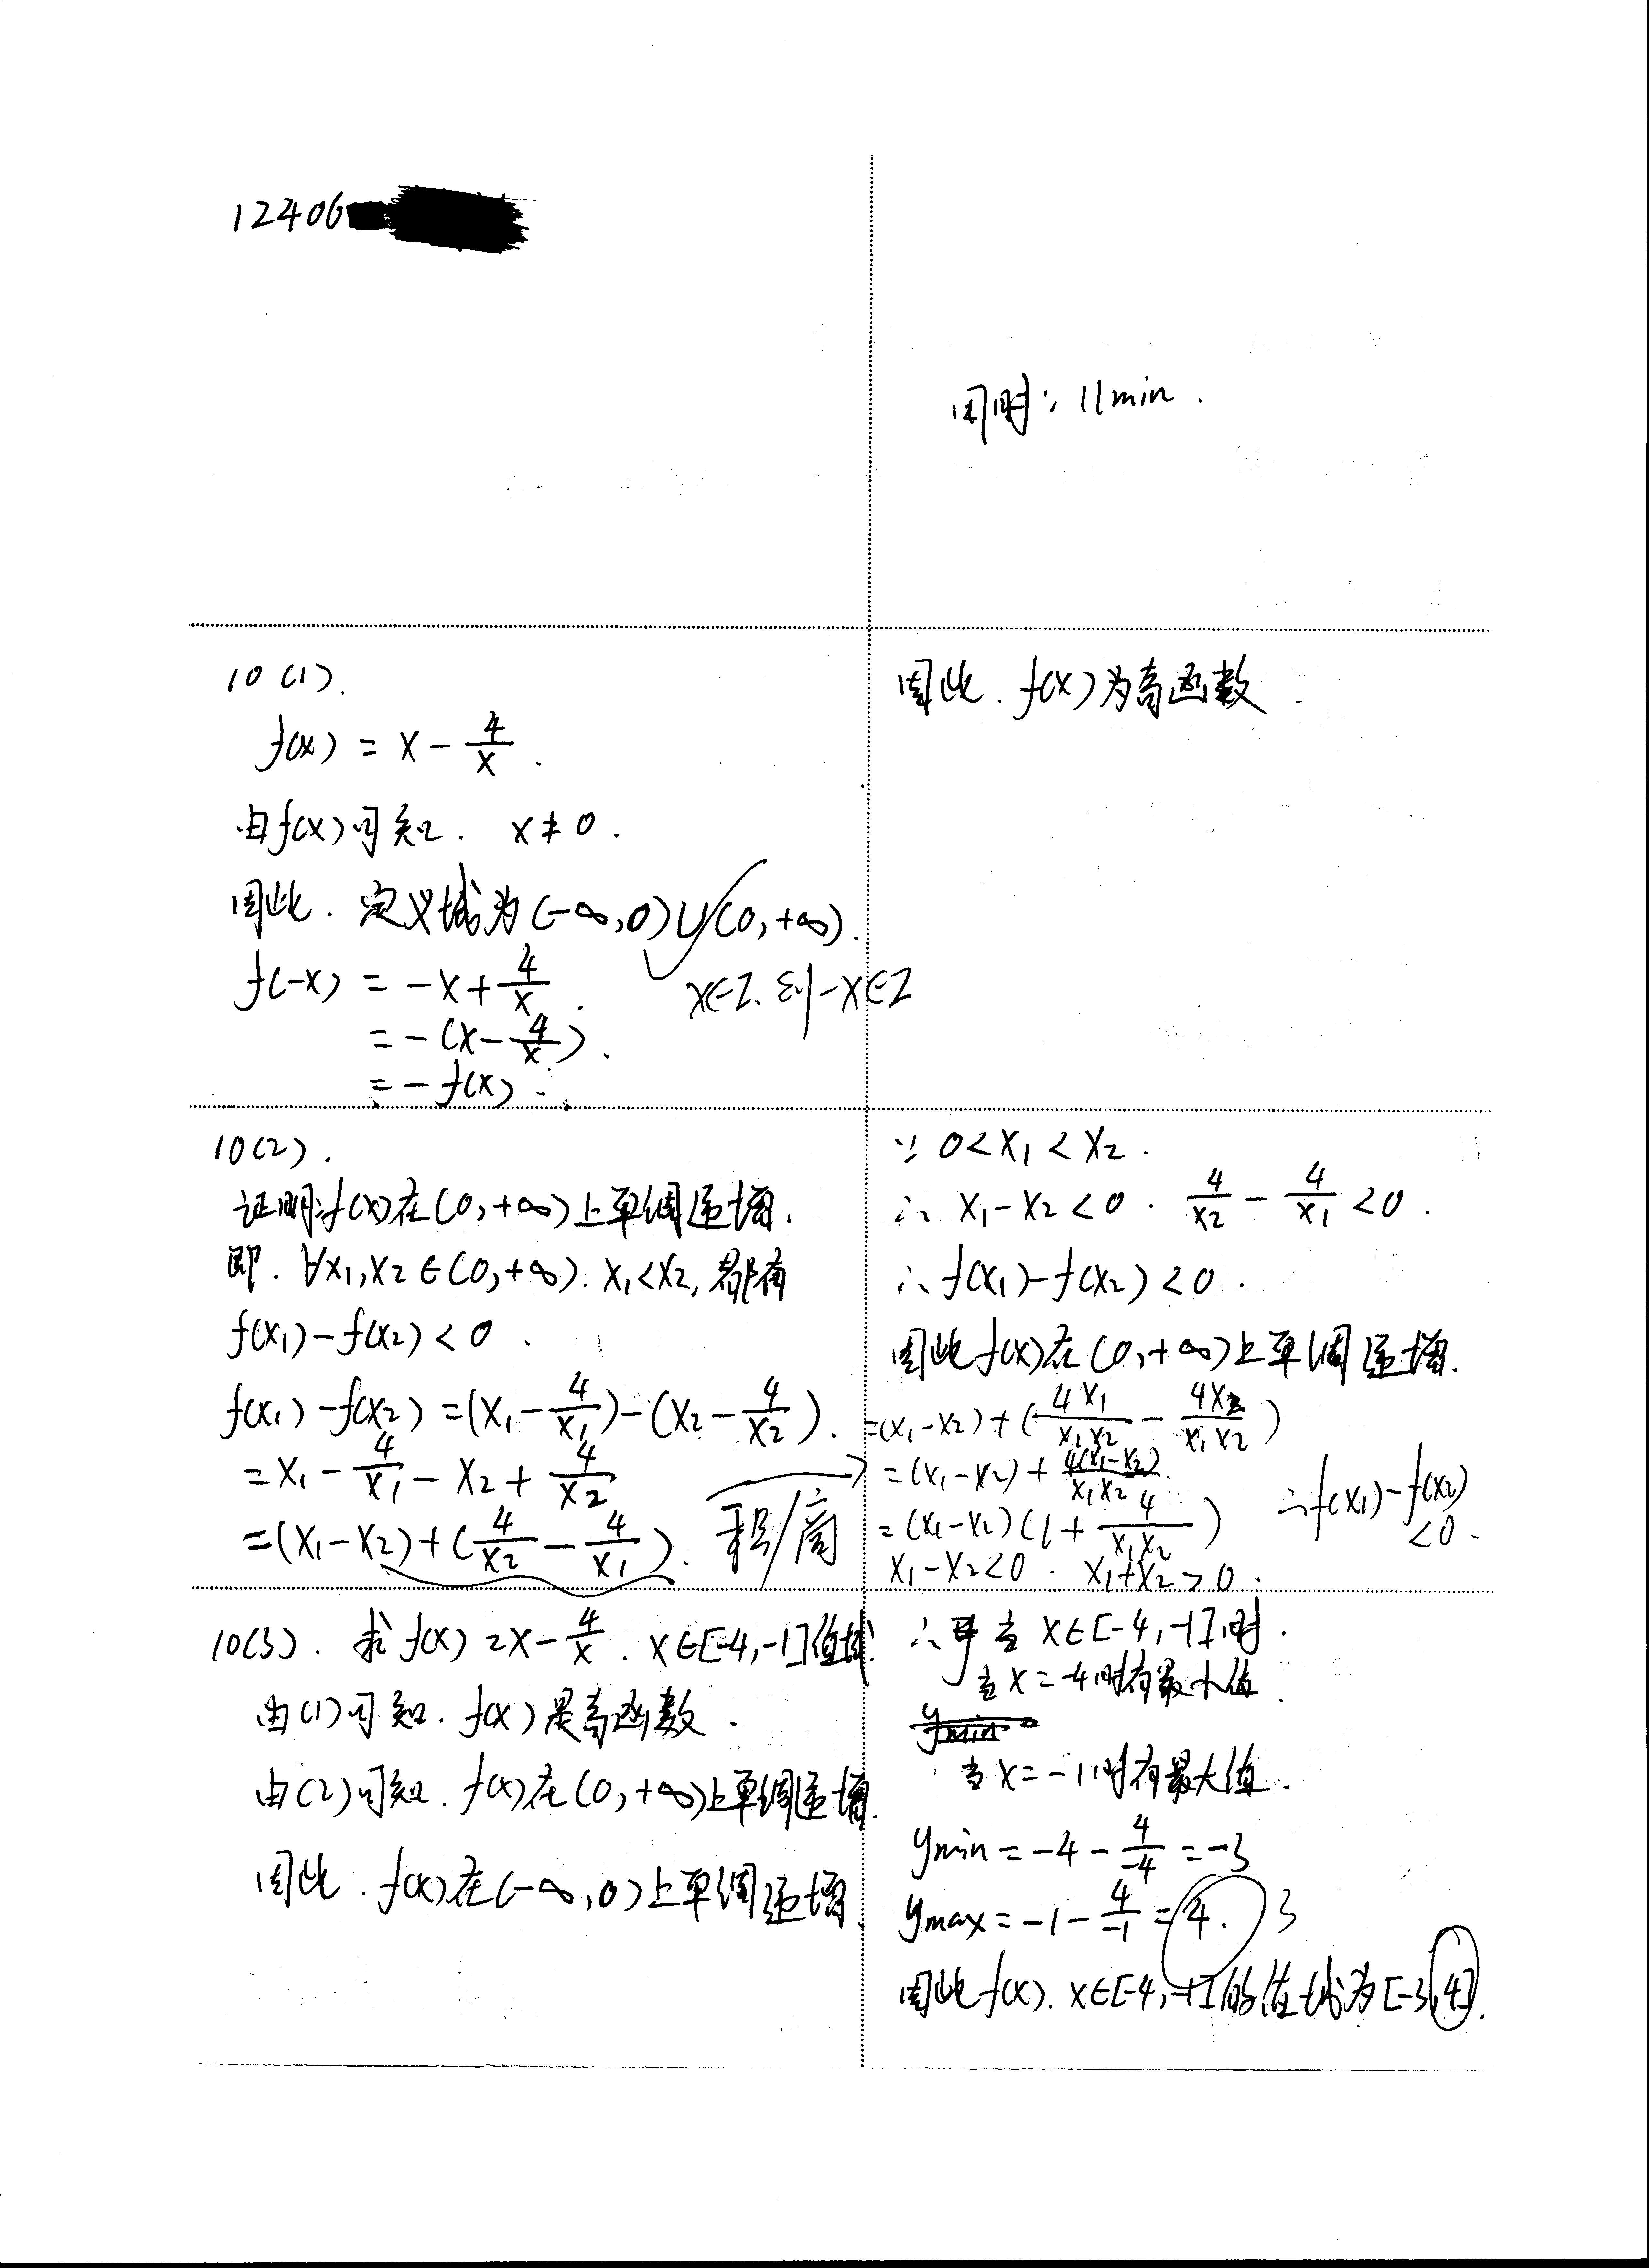 12406
用时：11min.
10(1).
f(x) = x - 4/x.
由f(x)可知. x≠0.
因此. 定义域为(-∞,0)∪(0,+∞).
f(-x) = -x + 4/x.
x∈I. 则-x∈I
= -(x - 4/x).
= -f(x).
因此. f(x)为奇函数.
10(2).
证明:f(x)在(0,+∞)上单调递增.
即. ∀x₁,x₂∈(0,+∞). x₁<x₂, 都有
f(x₁)-f(x₂)<0.
f(x₁)-f(x₂) = (x₁ - 4/x₁) - (x₂ - 4/x₂).
= x₁ - 4/x₁ - x₂ + 4/x₂
= (x₁-x₂) + (4/x₂ - 4/x₁).
积/商
∵ 0<x₁<x₂.
∴ x₁-x₂<0. 4/x₂ - 4/x₁ <0.
∴ f(x₁)-f(x₂)<0.
因此f(x)在(0,+∞)上单调递增.
=(x₁-x₂) + (4x₁/x₁x₂ - 4x₂/x₁x₂)
=(x₁-x₂) + 4(x₁-x₂)/x₁x₂
=(x₁-x₂)(1 + 4/x₁x₂)
∴f(x₁)-f(x₂)
<0.
x₁-x₂<0. x₁+x₂>0.
10(3). 求f(x)=x - 4/x. x∈[-4,-1]值域.
由(1)可知. f(x)是奇函数.
由(2)可知. f(x)在(0,+∞)上单调递增.
因此. f(x)在(-∞,0)上单调递增.
∴ 当 x∈[-4,-1]时.
当x=-4时有最小值.
ymin=
当x=-1时有最大值.
ymin = -4 - 4/-4 = -3
ymax = -1 - 4/-1 = 4. 3
因此f(x). x∈[-4,-1]的值域为[-3,4].